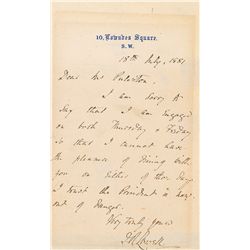 10, Lowndes Square.
S.W.
18th July, 1881
Dear Mr
I am sorry to
say that I am engaged
on both Thursday & Friday
so that I cannot have
the pleasure of dining with
you on either of those days.
I trust the President is now
out of danger.
Very truly yours
J. R. Lowell